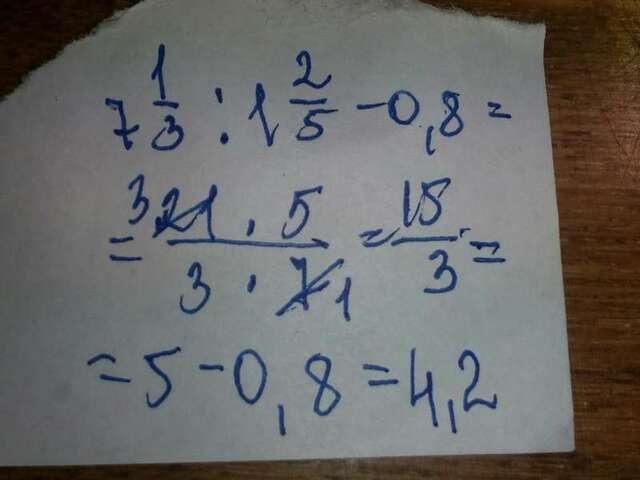 7 1/3 : 1 2/5 - 0,8 =
= 3 21 · 5 / 3 · 7 1 = 15/3 =
= 5 - 0,8 = 4,2